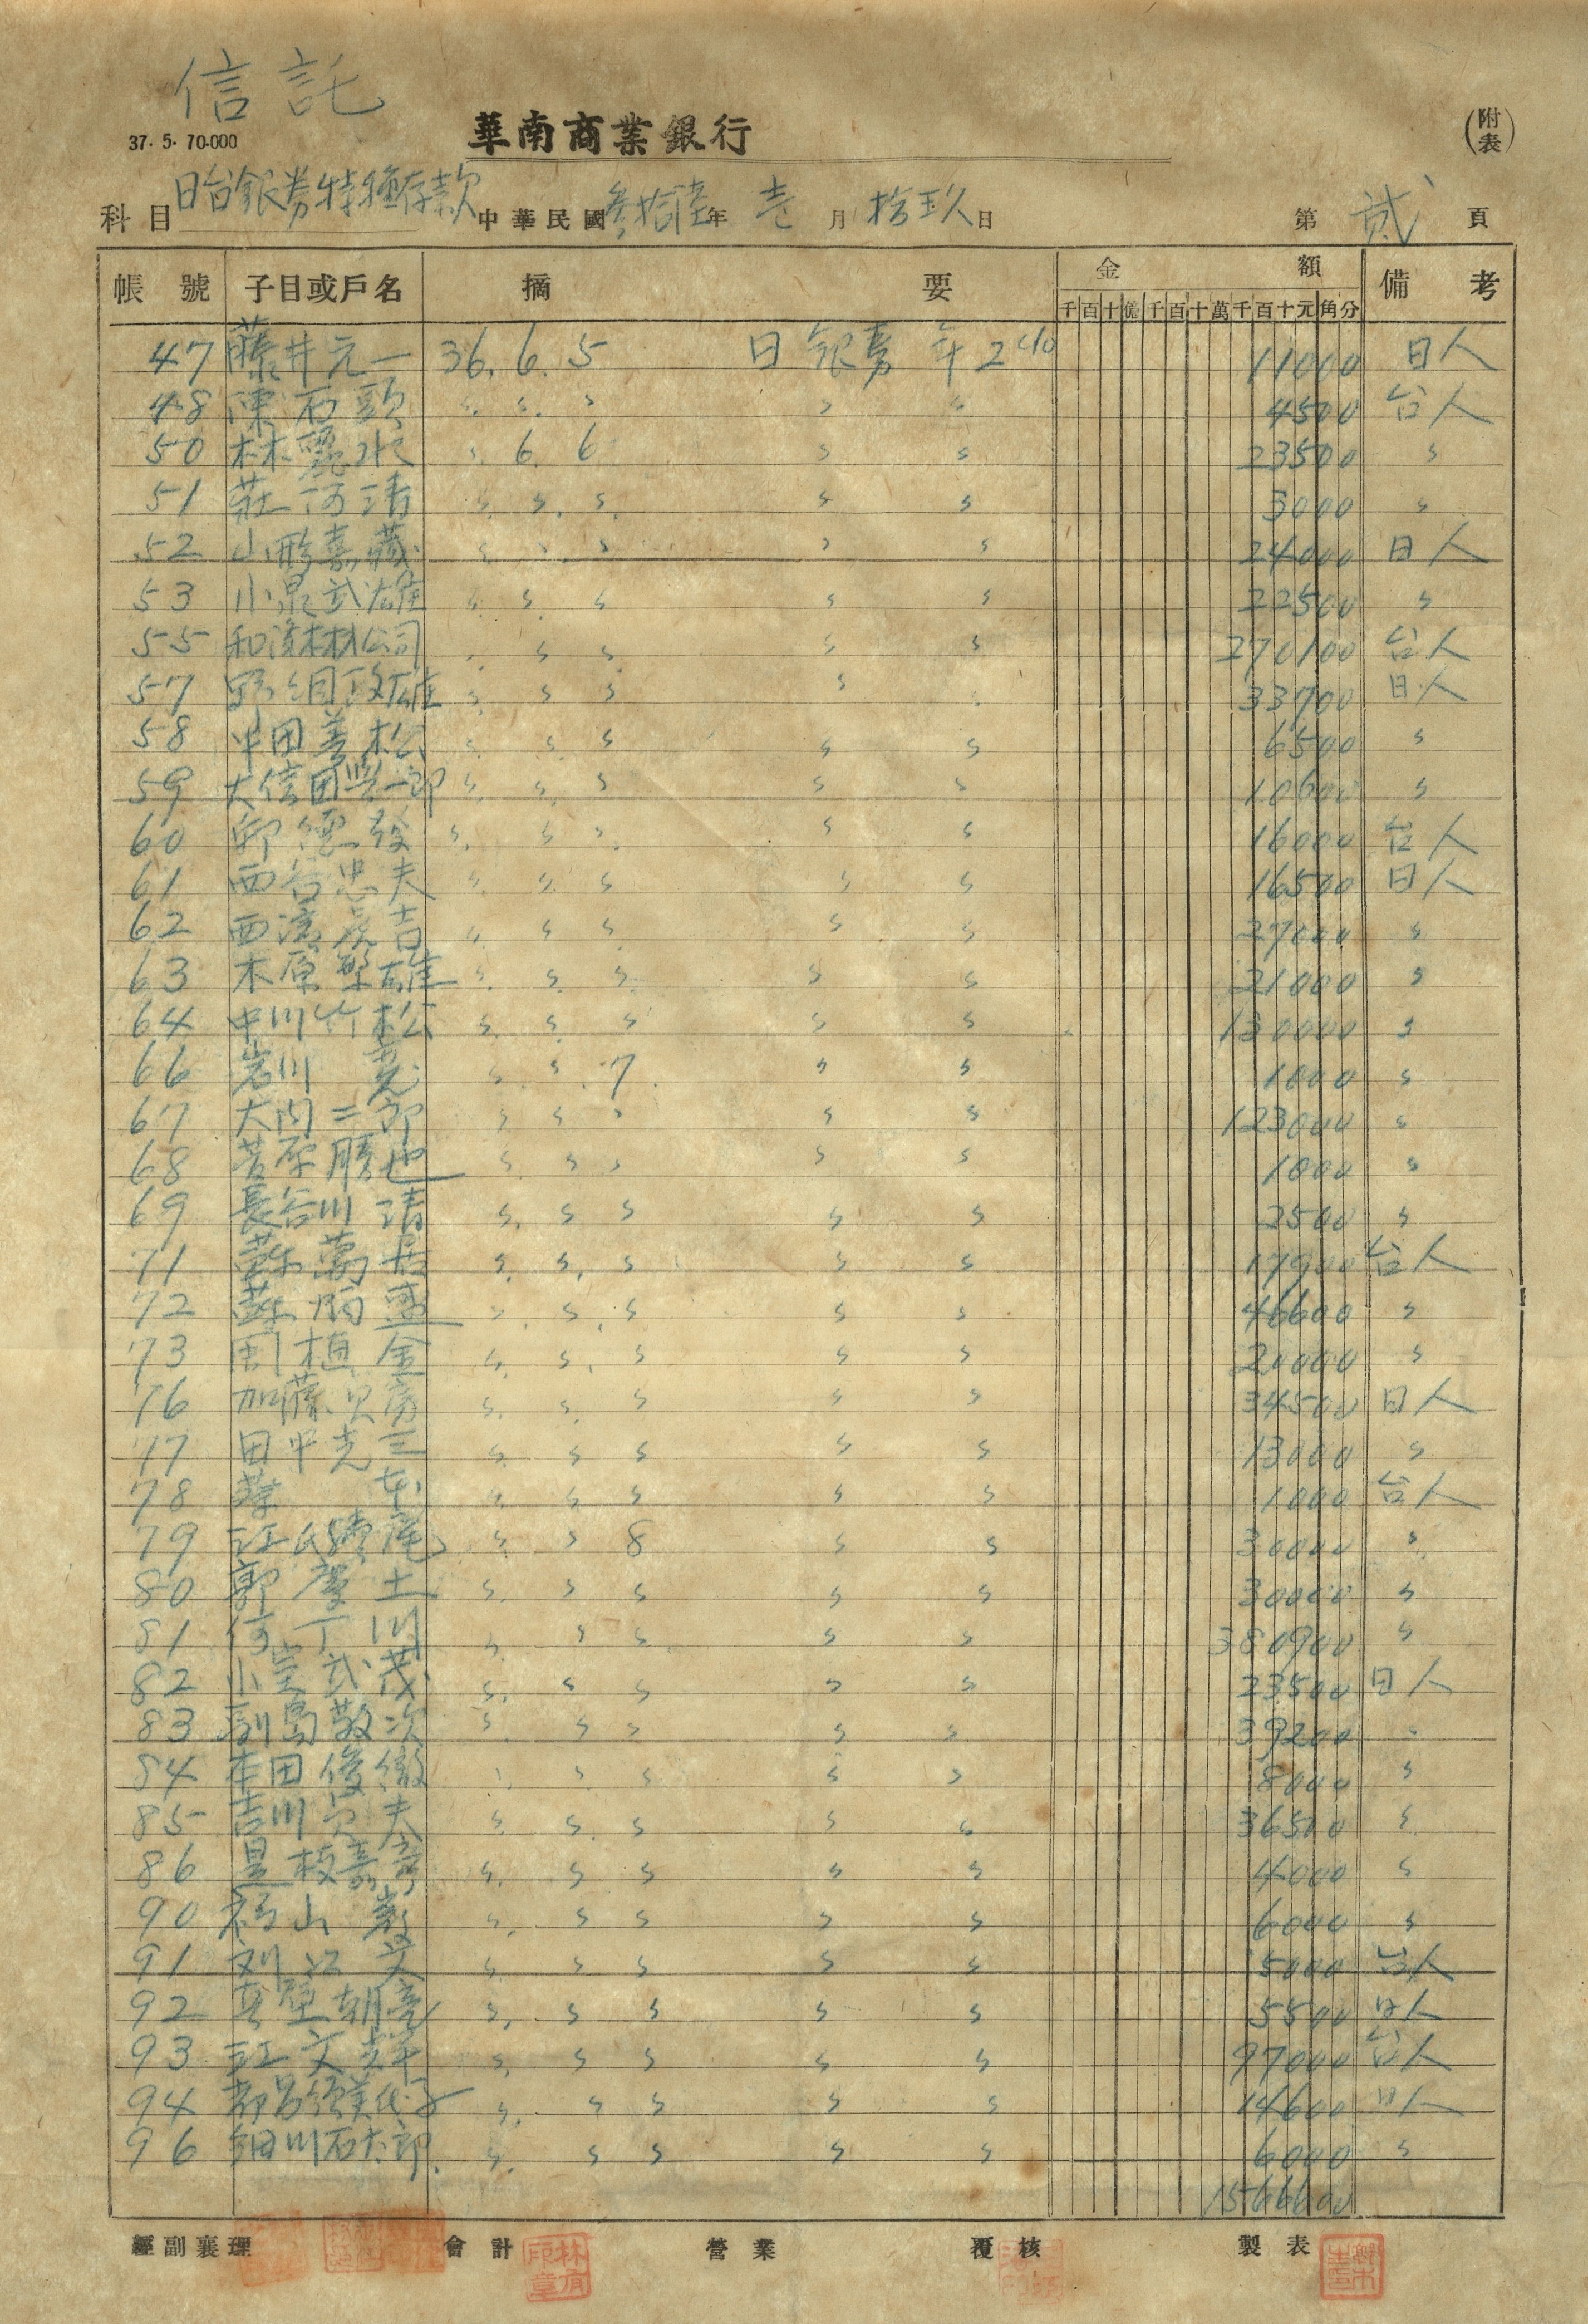 信託
37. 5. 70.000
華南商業銀行
(附表)
科目 日台銀券特種存款 中華民國參拾陸年 壱 月 拾玖 日 第 貳 頁
帳號 子目或戶名 摘要 金額 備考
千百十億千百十萬千百十元角分
47 藤井元一 36. 6. 5 日銀劵 年2% 11000 日人
48 陳石頭 〃 〃 〃 〃 〃 4500 台人
50 林麗水 〃 6 6 〃 〃 23500 〃
51 莊河清 〃 〃 〃 〃 〃 3000 〃
52 山形嘉藏 〃 〃 〃 〃 〃 24000 日人
53 小泉武雄 〃 〃 〃 〃 〃 22500 〃
55 和済木材公司 〃 〃 〃 〃 〃 270100 台人
57 政雄 〃 〃 〃 〃 33700 日人
58 中田善松 〃 〃 〃 〃 〃 6500 〃
59 大信田 一郎 〃 〃 〃 〃 〃 10600 〃
60 郭德發 〃 〃 〃 〃 〃 16000 台人
61 西谷忠夫 〃 〃 〃 〃 〃 16500 日人
62 西濱虎吉 〃 〃 〃 〃 〃 27000 〃
63 木原繁雄 〃 〃 〃 〃 〃 21000 〃
64 中川竹松 〃 〃 〃 〃 〃 130000 〃
66 岩川 〃 〃 7 〃 〃 1000 〃
67 大内二郎 〃 〃 〃 〃 〃 123000 〃
68 菅原勝也 〃 〃 〃 〃 〃 1000 〃
69 長谷川清 〃 〃 〃 〃 〃 3500 〃
71 蘇萬居 〃 〃 〃 〃 〃 17900 台人
72 蘇 盛 〃 〃 〃 〃 〃 46600 〃
73 周植金 〃 〃 〃 〃 〃 20000 〃
76 加藤 〃 〃 〃 〃 〃 34500 日人
77 田中光三 〃 〃 〃 〃 〃 13000 〃
78 蔡 〃 〃 〃 〃 〃 1000 台人
79 江氏 〃 〃 8 〃 〃 30000 〃
80 郭慶土 〃 〃 〃 〃 〃 30000 〃
81 何丁川 〃 〃 〃 〃 〃 380900 〃
82 小 武茂 〃 〃 〃 〃 〃 23500 日人
83 副島敬次 〃 〃 〃 〃 〃 39200 〃
84 本田俊徹 〃 〃 〃 〃 〃 8000 〃
85 吉川 夫 〃 〃 〃 〃 〃 36500 〃
86 是枝嘉 〃 〃 〃 〃 〃 4000 〃
90 福山巖 〃 〃 〃 〃 〃 6000 〃
91 刘江文 〃 〃 〃 〃 〃 5000 台人
92 真壁朝亮 〃 〃 〃 〃 〃 5500 日人
93 江文 〃 〃 〃 〃 〃 97000 台人
94 都呂須美代子 〃 〃 〃 〃 〃 14600 日人
96 細川石太郎 〃 〃 〃 〃 〃 6000 〃
1566600
經副襄理 會計 營業 覆核 製表